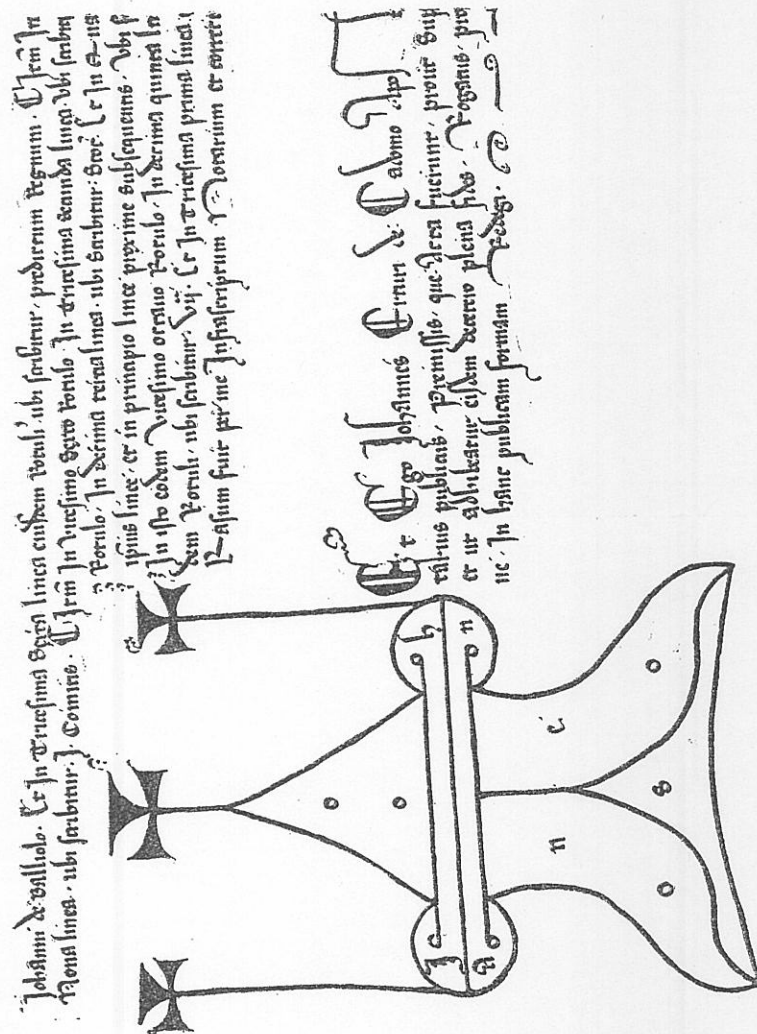 Johanni de Balliolo. Et In tricesima Sexta linea eiusdem Rotuli. ubi scribitur. predictum Regnum. Itm In
Nona linea. ubi scribitur. J. Comitis. Itm In vicesimo Sexto Rotulo In tricesima secunda linea. ubi scribitur
Rotulo. In decima tercia linea. ubi scribitur. Scoc. Et In
ipsius linee. et in principio linee proxime subsequentis. Ubi
In isto eodem vicesimo octavo Rotulo. In decima quinta
dem Rotuli. ubi scribitur. vij. Et In tricesima prima linea.
Rasum fuit per me Infrascriptum Notarium et correct
Et Ego Johannes Erturi de Cadomo Apo
publicus. Premissis. que Acta fuerunt. prout Sup
et ut adhibeatur eisdem decetero plena fides. Rogatus.
ne. In hanc publicam formam Redegi.